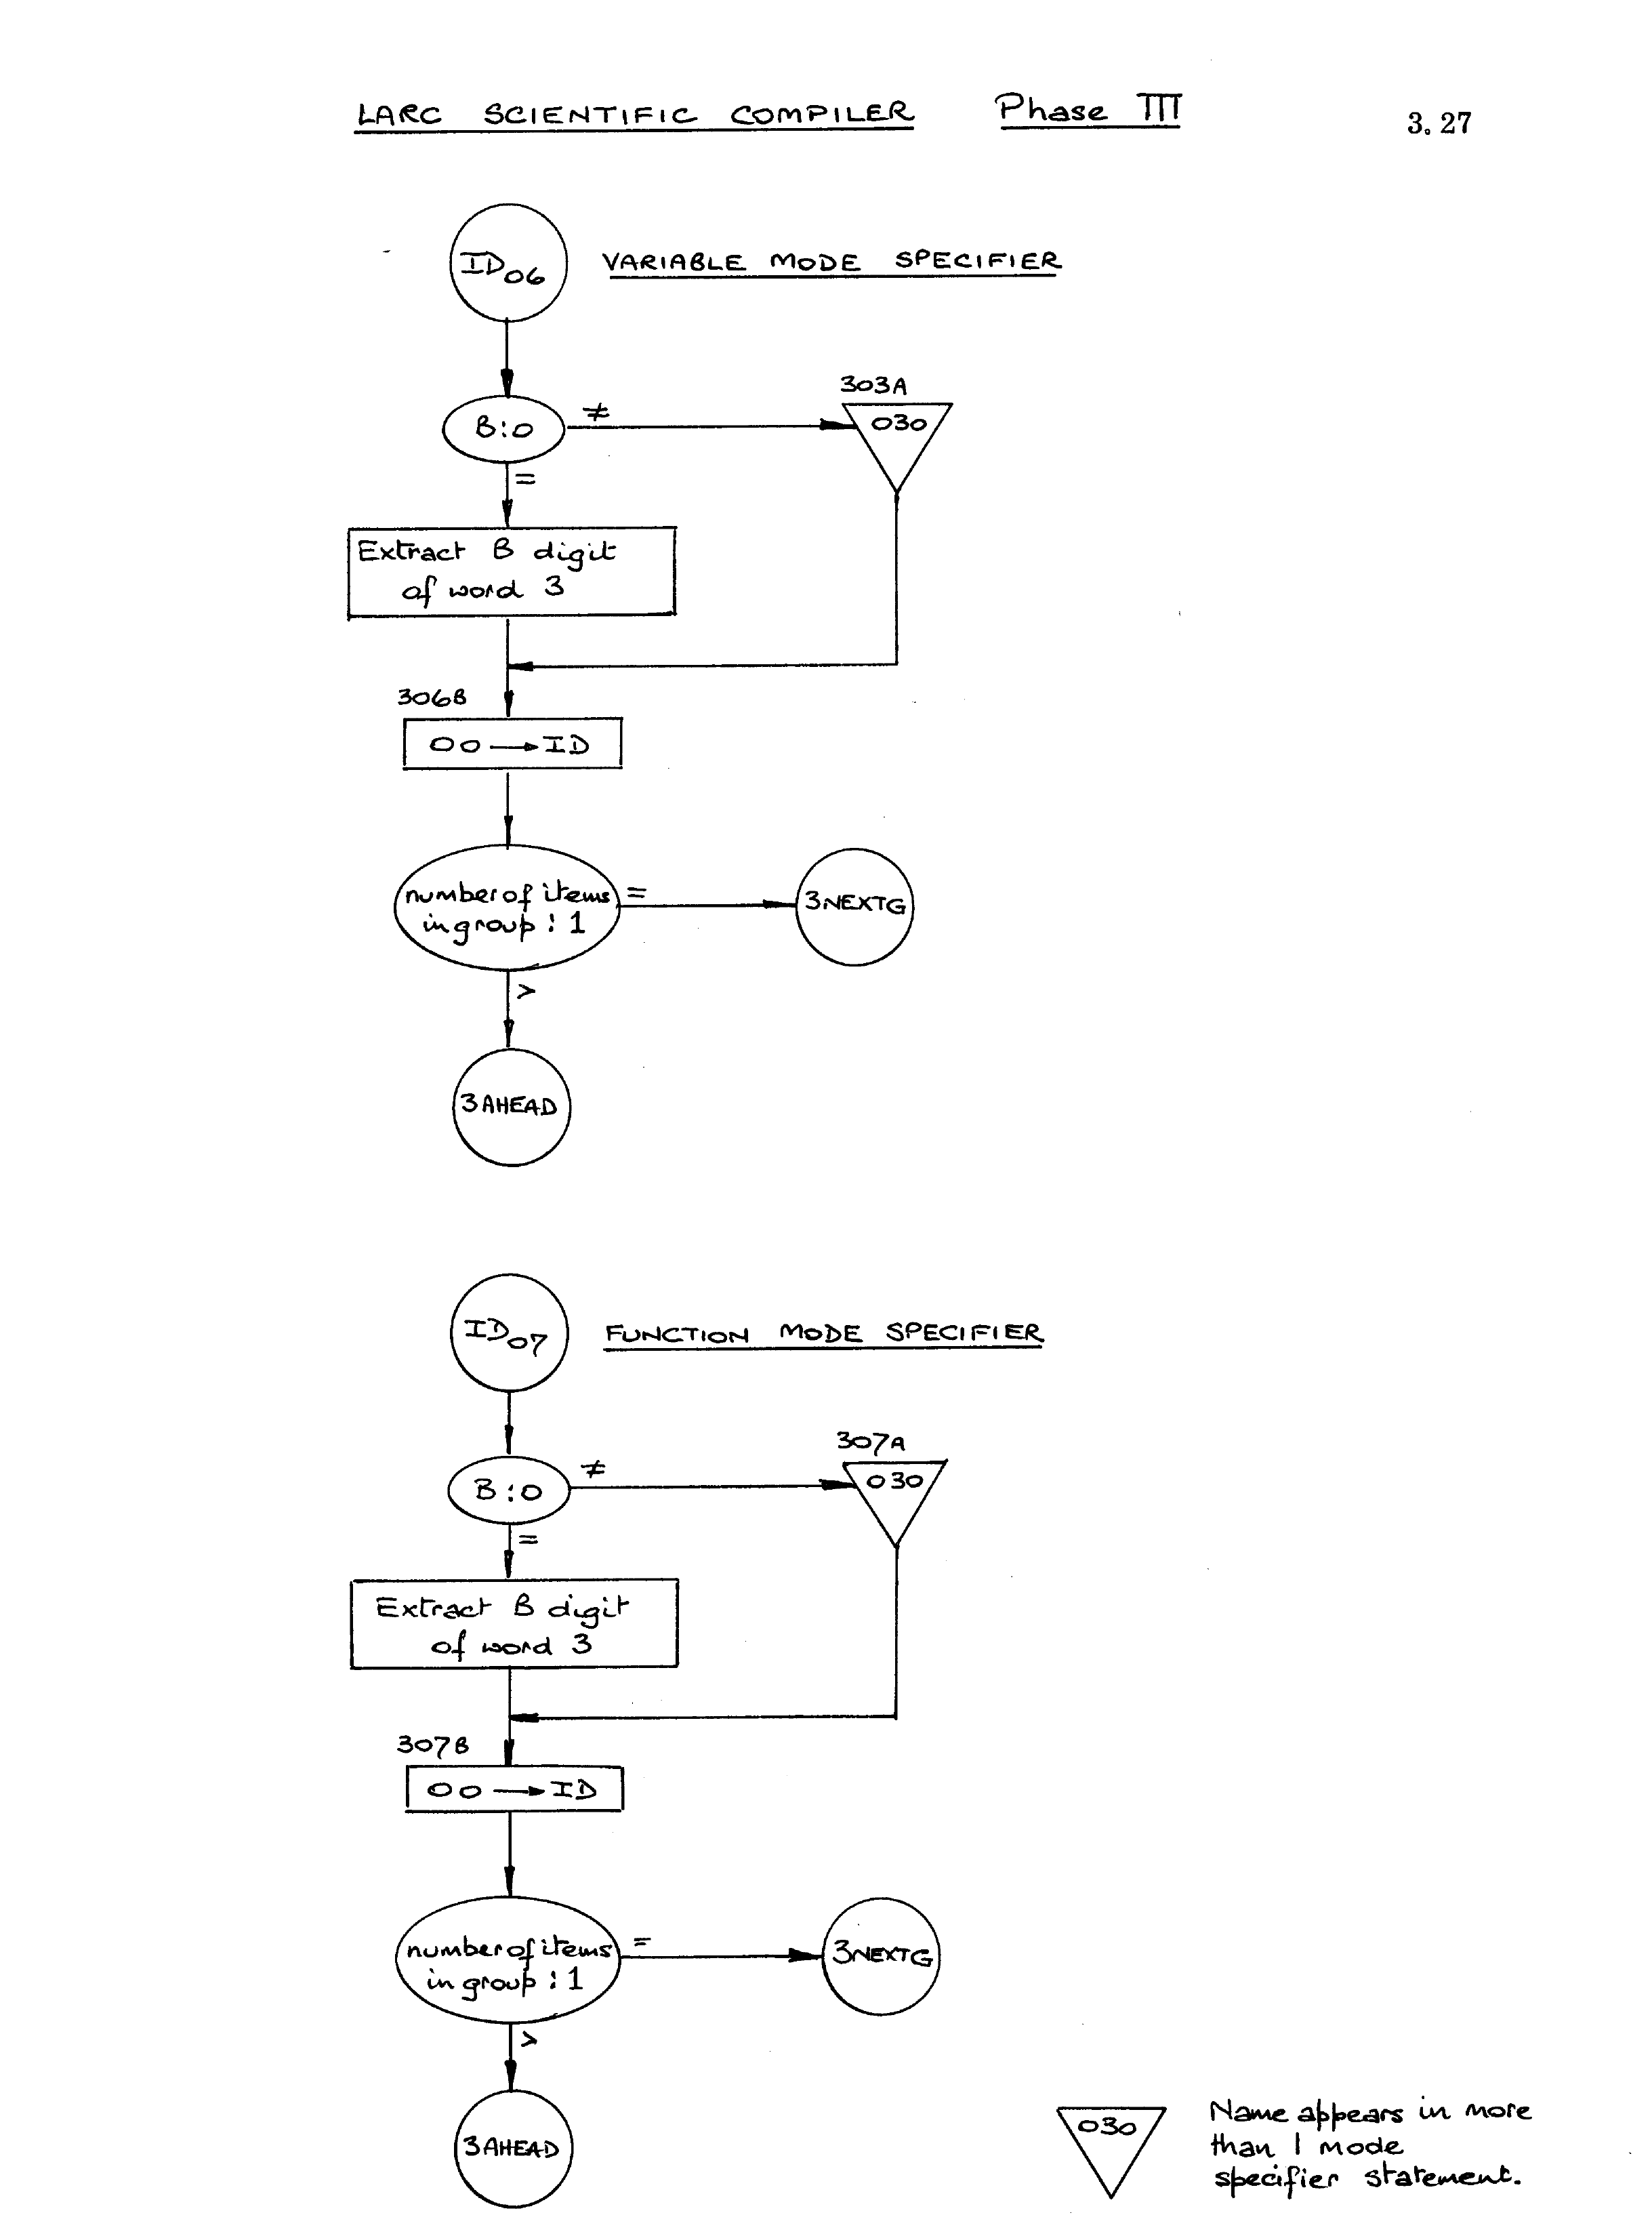 LARC SCIENTIFIC COMPILER Phase III
3.27
ID06
VARIABLE MODE SPECIFIER
303A
B:0
≠
030
=
Extract B digit
of word 3
306B
00 → ID
number of items
in group : 1
=
3NEXTG
>
3AHEAD
ID07
FUNCTION MODE SPECIFIER
307A
B:0
≠
030
=
Extract B digit
of word 3
307B
00 → ID
number of items
in group : 1
=
3NEXTG
>
3AHEAD
030
Name appears in more
than 1 mode
specifier statement.